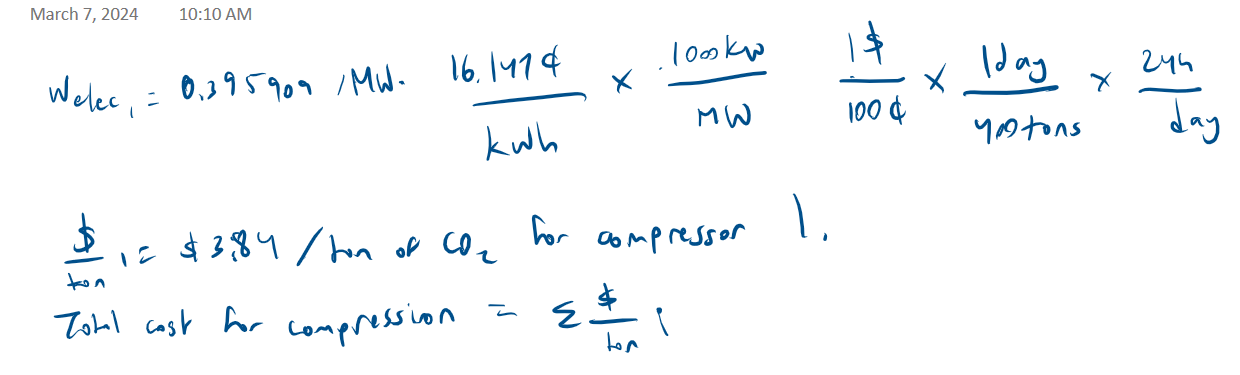 March 7, 2024 10:10 AM
Welec, = 0.395909 /MW. 16.147¢/kWh × 1000kW/MW 1$/100¢ × 1day/400tons × 24h/day
$/ton 1 = $3.84 / ton of CO₂ for compressor 1.
Total cost for compression = Σ $/ton i